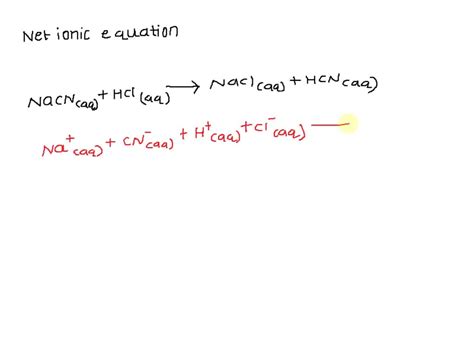 Net ionic equation
NaCN(aq) + HCl(aq) ⟶ NaCl(aq) + HCN(aq)
Na⁺(aq) + CN⁻(aq) + H⁺(aq) + Cl⁻(aq) —